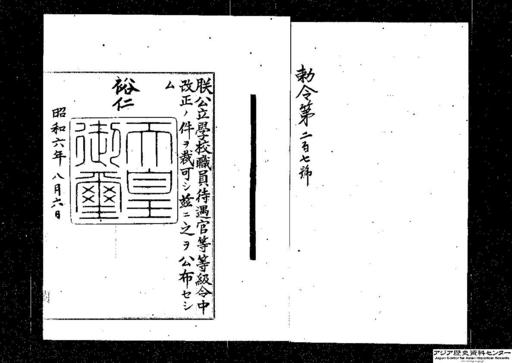 勅令第二百七號
朕公立學校職員待遇官等等級令中
改正ノ件ヲ裁可シ茲ニ之ヲ公布セシ
ム
裕仁
天皇
御璽
昭和六年八月六日
アジア歴史資料センター
Japan Center for Asian Historical Records